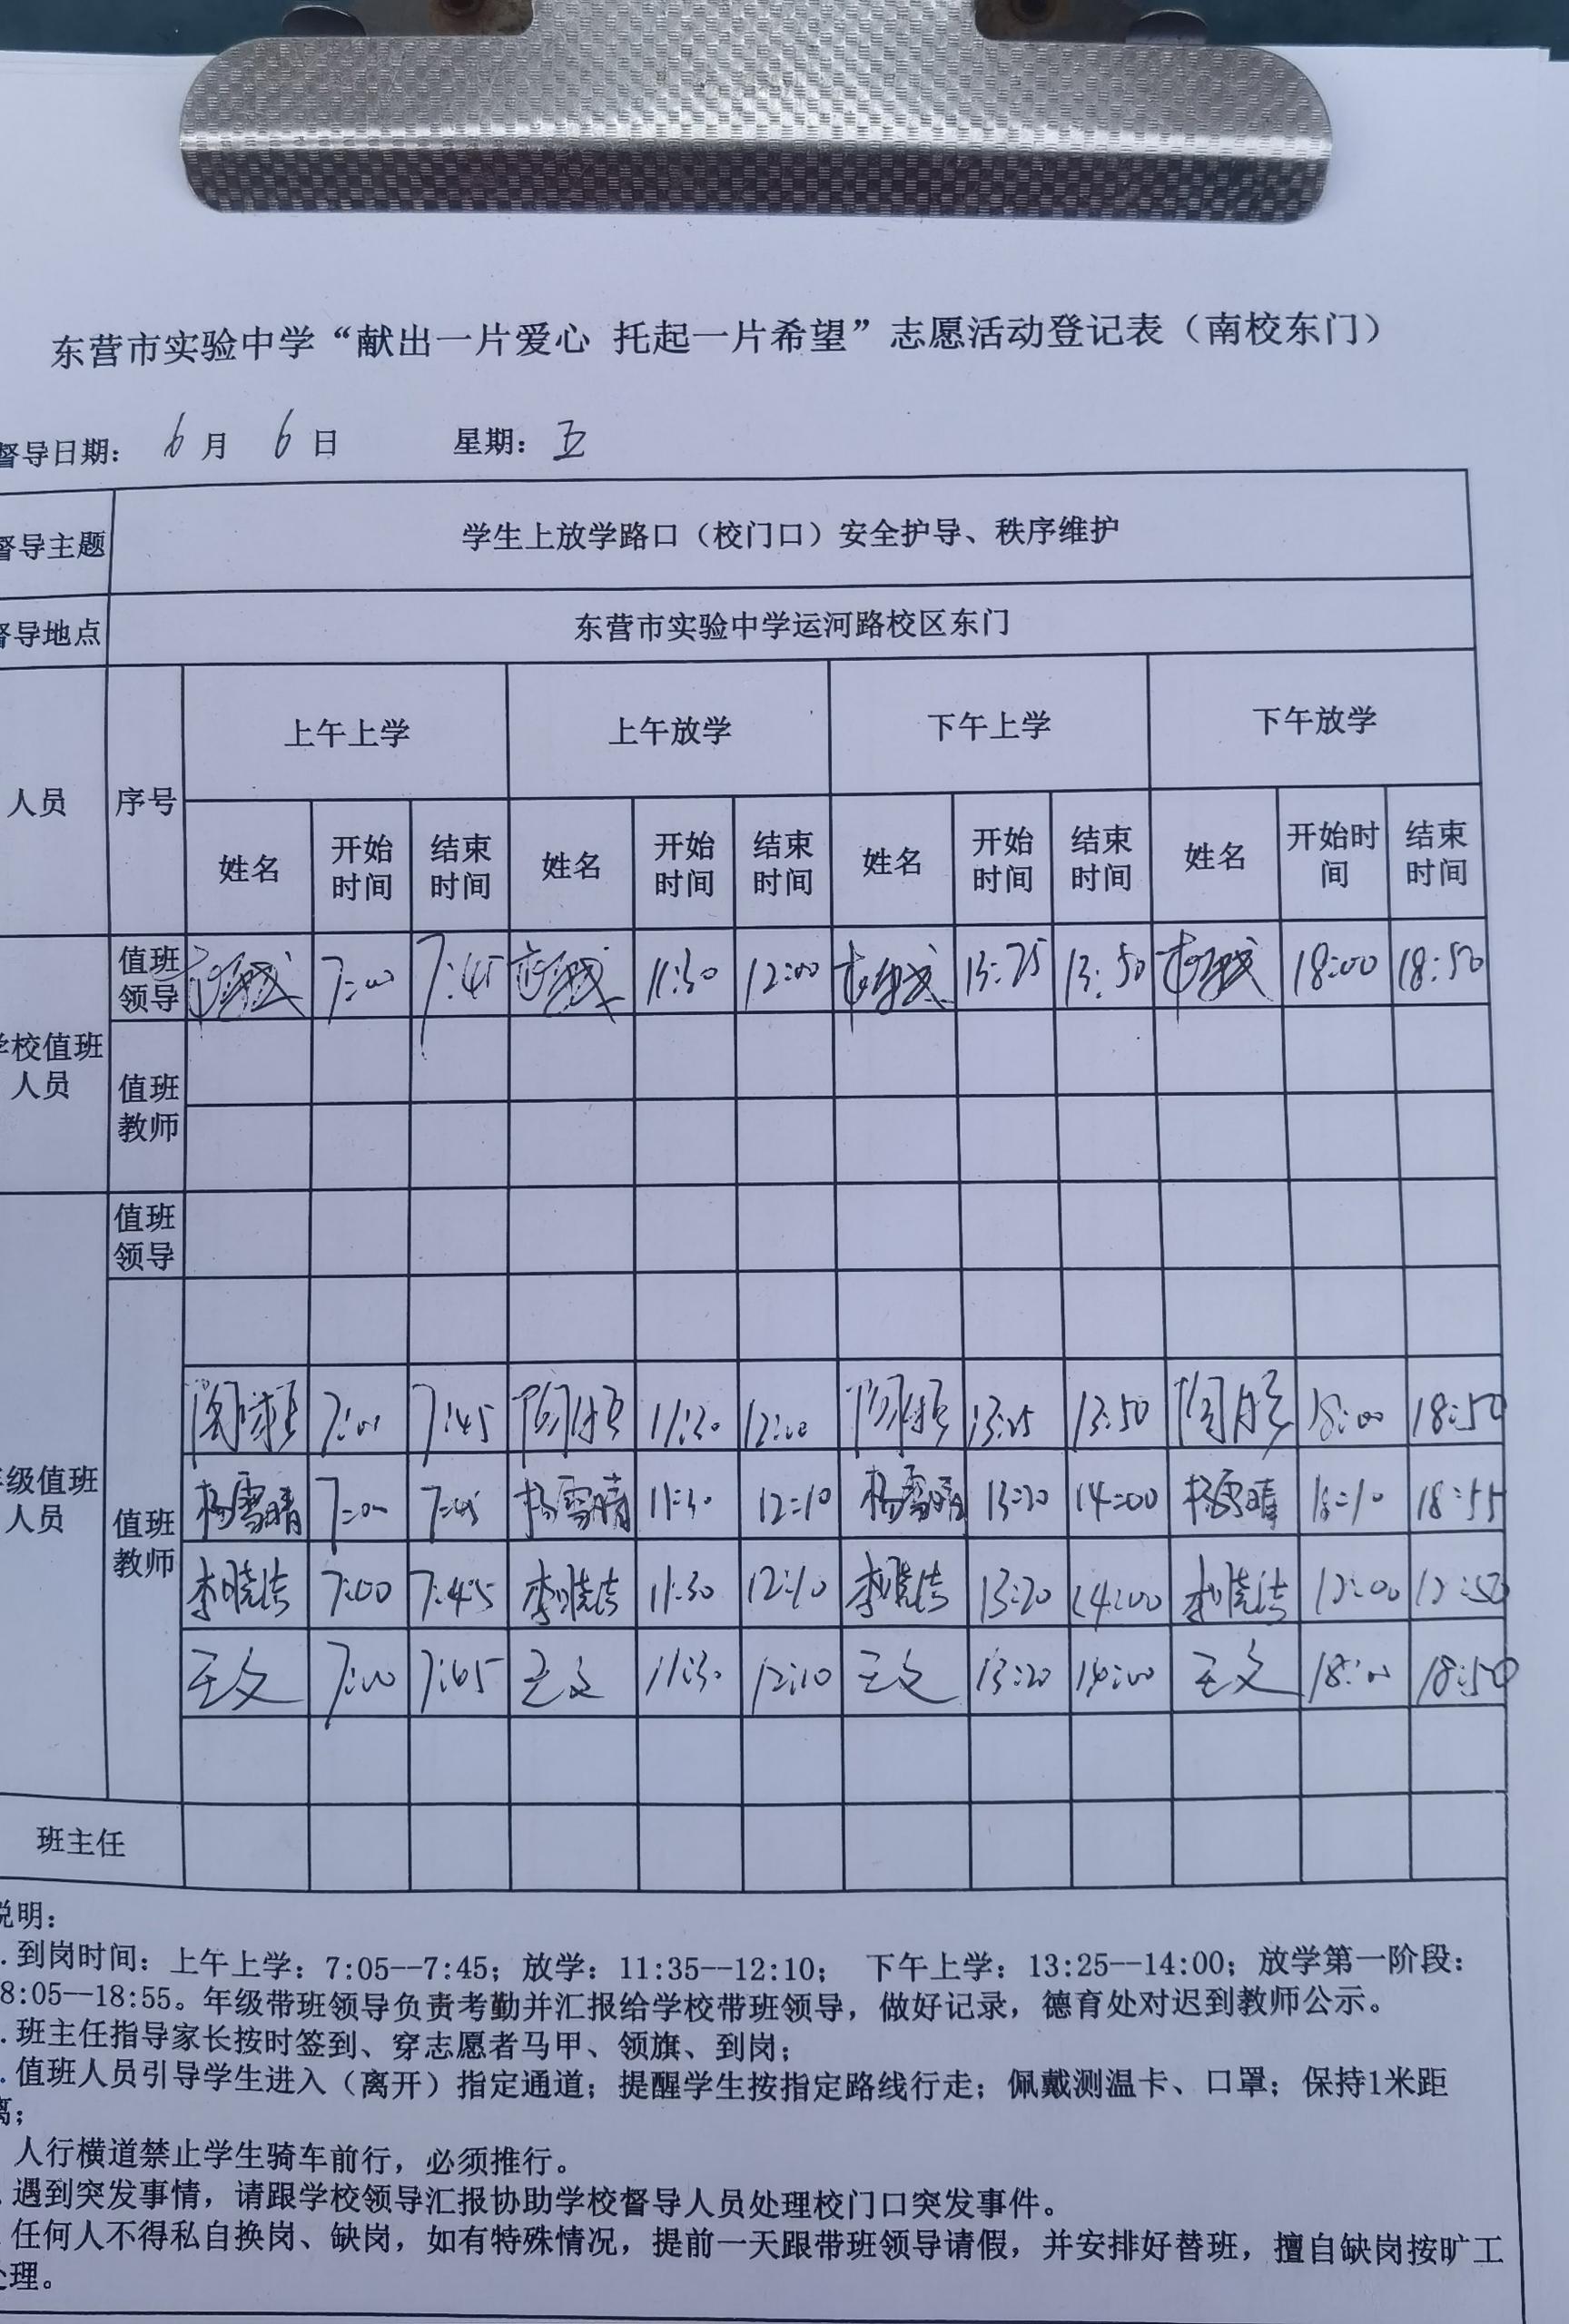 东营市实验中学“献出一片爱心 托起一片希望”志愿活动登记表（南校东门）
督导日期： 6 月 6 日 星期：五
督导主题 学生上放学路口（校门口）安全护导、秩序维护
督导地点 东营市实验中学运河路校区东门
人员 序号 上午上学 上午放学 下午上学 下午放学
姓名 开始时间 结束时间 姓名 开始时间 结束时间 姓名 开始时间 结束时间 姓名 开始时间 结束时间
学校值班人员
值班领导 7:00 7:45 11:30 12:00 13:25 13:50 18:00 18:50
值班教师
年级值班人员
值班领导
值班教师
7:00 7:45 11:30 12:00 13:25 13:50 18:00 18:50
杨雪晴 7:00 7:45 杨雪晴 11:30 12:10 杨雪晴 13:20 14:00 杨雪晴 18:10 18:55
李晓洁 7:00 7:45 李晓洁 11:30 12:10 李晓洁 13:20 14:00 李晓洁
王文 7:00 7:45 王文 11:30 12:10 王文 13:20 14:00 王文 18:00 18:50
班主任
说明：
.到岗时间：上午上学：7:05--7:45；放学：11:35--12:10； 下午上学：13:25--14:00；放学第一阶段：
8:05--18:55。年级带班领导负责考勤并汇报给学校带班领导，做好记录，德育处对迟到教师公示。
.班主任指导家长按时签到、穿志愿者马甲、领旗、到岗；
.值班人员引导学生进入（离开）指定通道；提醒学生按指定路线行走；佩戴测温卡、口罩；保持1米距
离；
人行横道禁止学生骑车前行，必须推行。
.遇到突发事情，请跟学校领导汇报协助学校督导人员处理校门口突发事件。
任何人不得私自换岗、缺岗，如有特殊情况，提前一天跟带班领导请假，并安排好替班，擅自缺岗按旷工
处理。